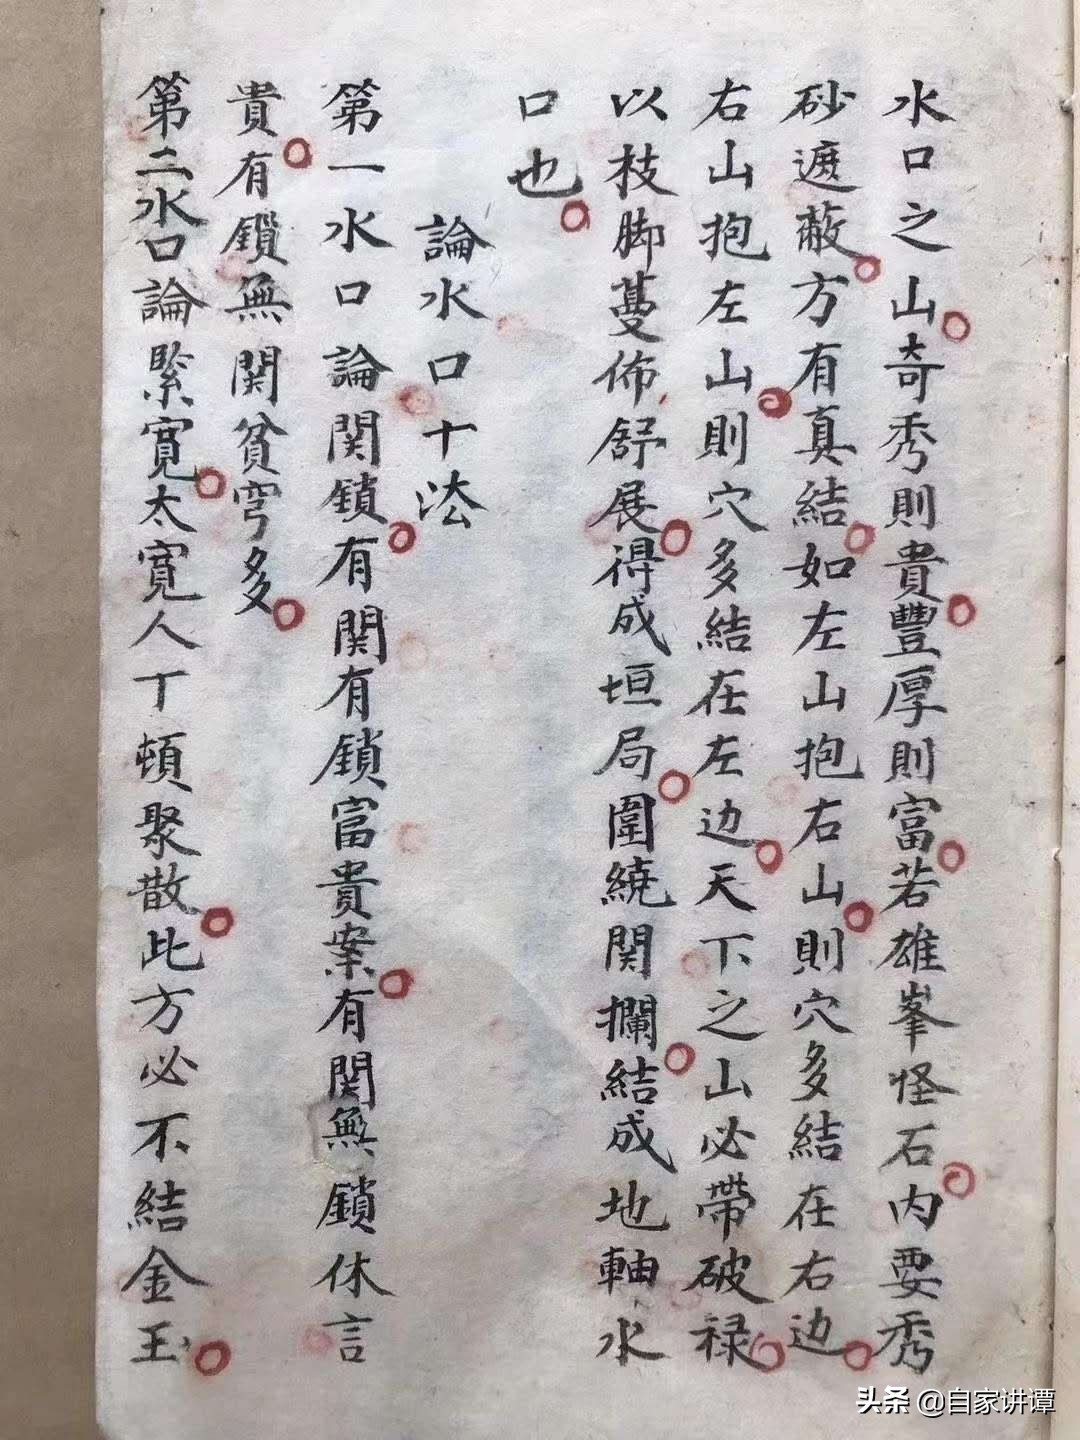 水口之山奇秀則貴豐厚則富若雄峯怪石内要秀
砂遮蔽方有真結如左山抱右山則穴多結在右边
右山抱左山則穴多結在左边天下之山必帶破禄
以枝脚蔓佈舒展得成垣局圍繞関攔結成地軸水
口也
論水口十法
第一水口論関鎖有関有鎖富貴案有関無鎖休言
貴有鎖無関貧穹多
第二水口論緊寬太寬人丁頓聚散此方必不結金玉
头条 @自家讲谭